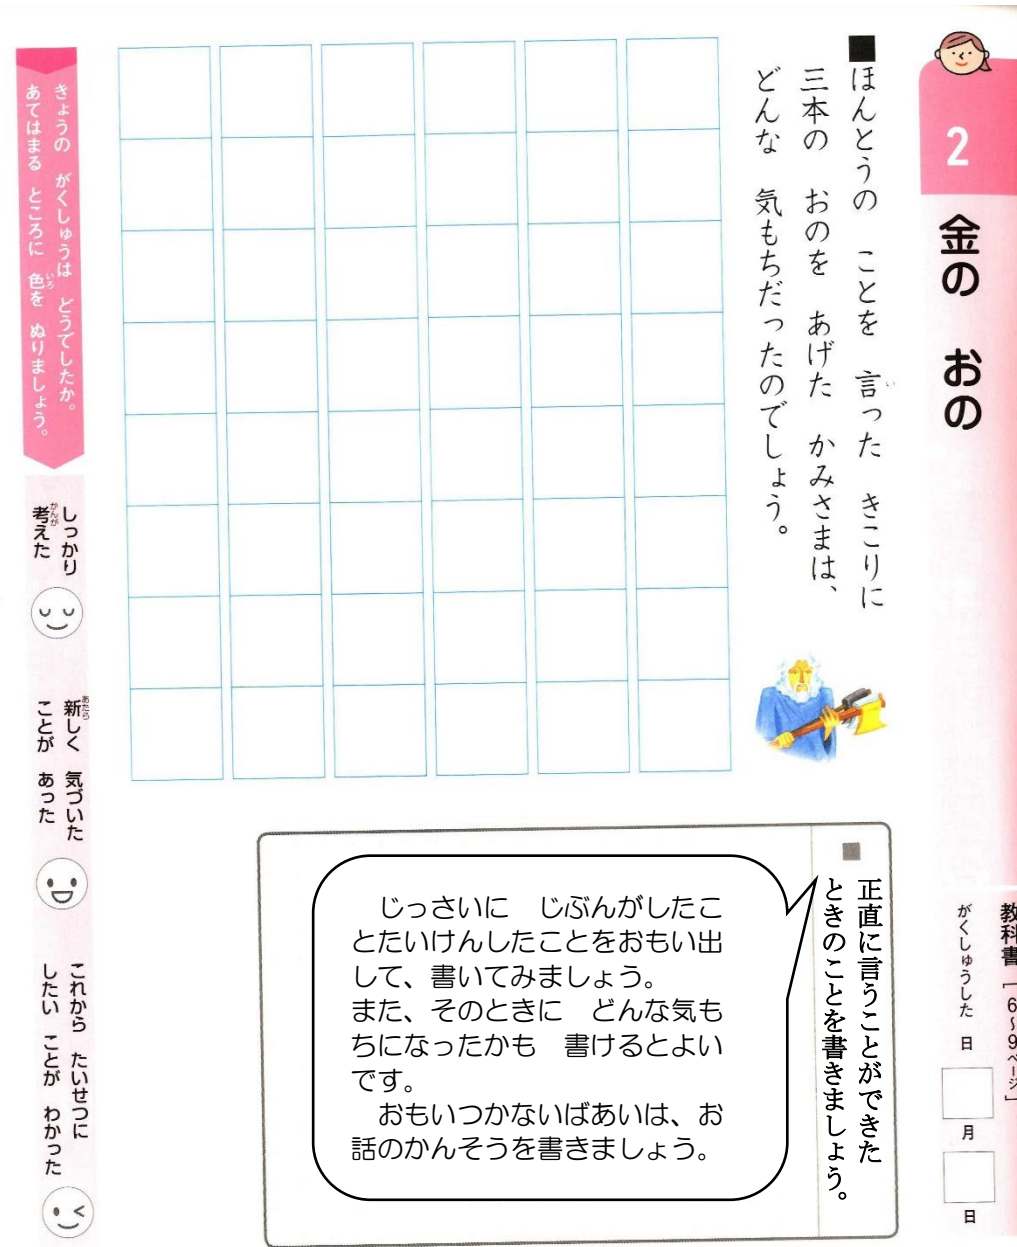 2
金の　おの
教科書［6〜9ページ］
がくしゅうした　日
月
日
■ほんとうの　ことを　言った　きこりに
三本の　おのを　あげた　かみさまは、
どんな　気もちだったのでしょう。
い
■正直に言うことができた
ときのことを書きましょう。
　じっさいに　じぶんがしたこ
とたいけんしたことをおもい出
して、書いてみましょう。
また、そのときに　どんな気も
ちになったかも　書けるとよい
です。
　おもいつかないばあいは、お
話のかんそうを書きましょう。
きょうの　がくしゅうは　どうでしたか。
あてはまる　ところに　色を　ぬりましょう。
いろ
しっかり
考えた
かんが
新しく　気づいた
ことが　あった
あたら
これから　たいせつに
したい　ことが　わかった